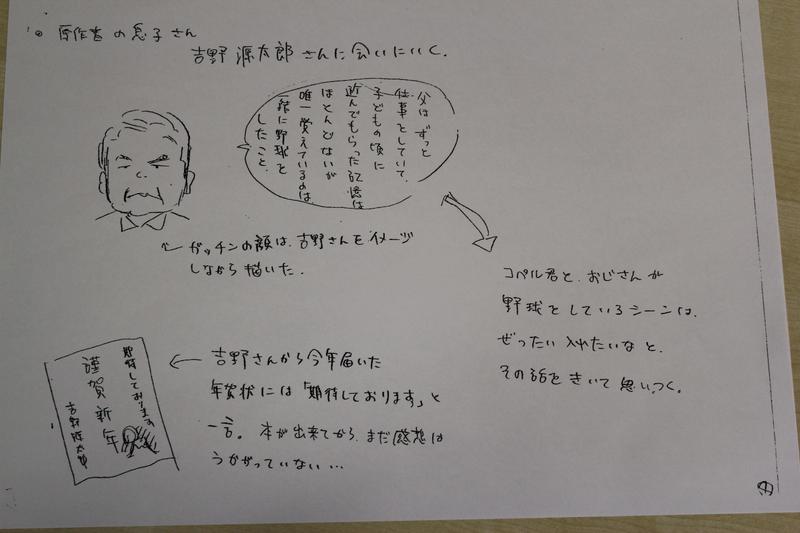 原作者の息子さん
吉野源太郎さんに会いにいく.
父はずっと
仕事をしていて、
子どもの頃に
遊んでもらった記憶は
ほとんどないが
唯一覚えているのは
一緒に野球を
したこと.
← ガッチンの顔は、吉野さんをイメージ
しながら描いた.
コペル君と、おじさんが
野球をしているシーンは、
ぜったい入れたいなと、
その話をきいて思いつく.
期待しております
謹賀新年
← 吉野さんから今年届いた
年賀状には「期待しております」と
一言。本が出来てから、まだ感想は
うかがっていない…